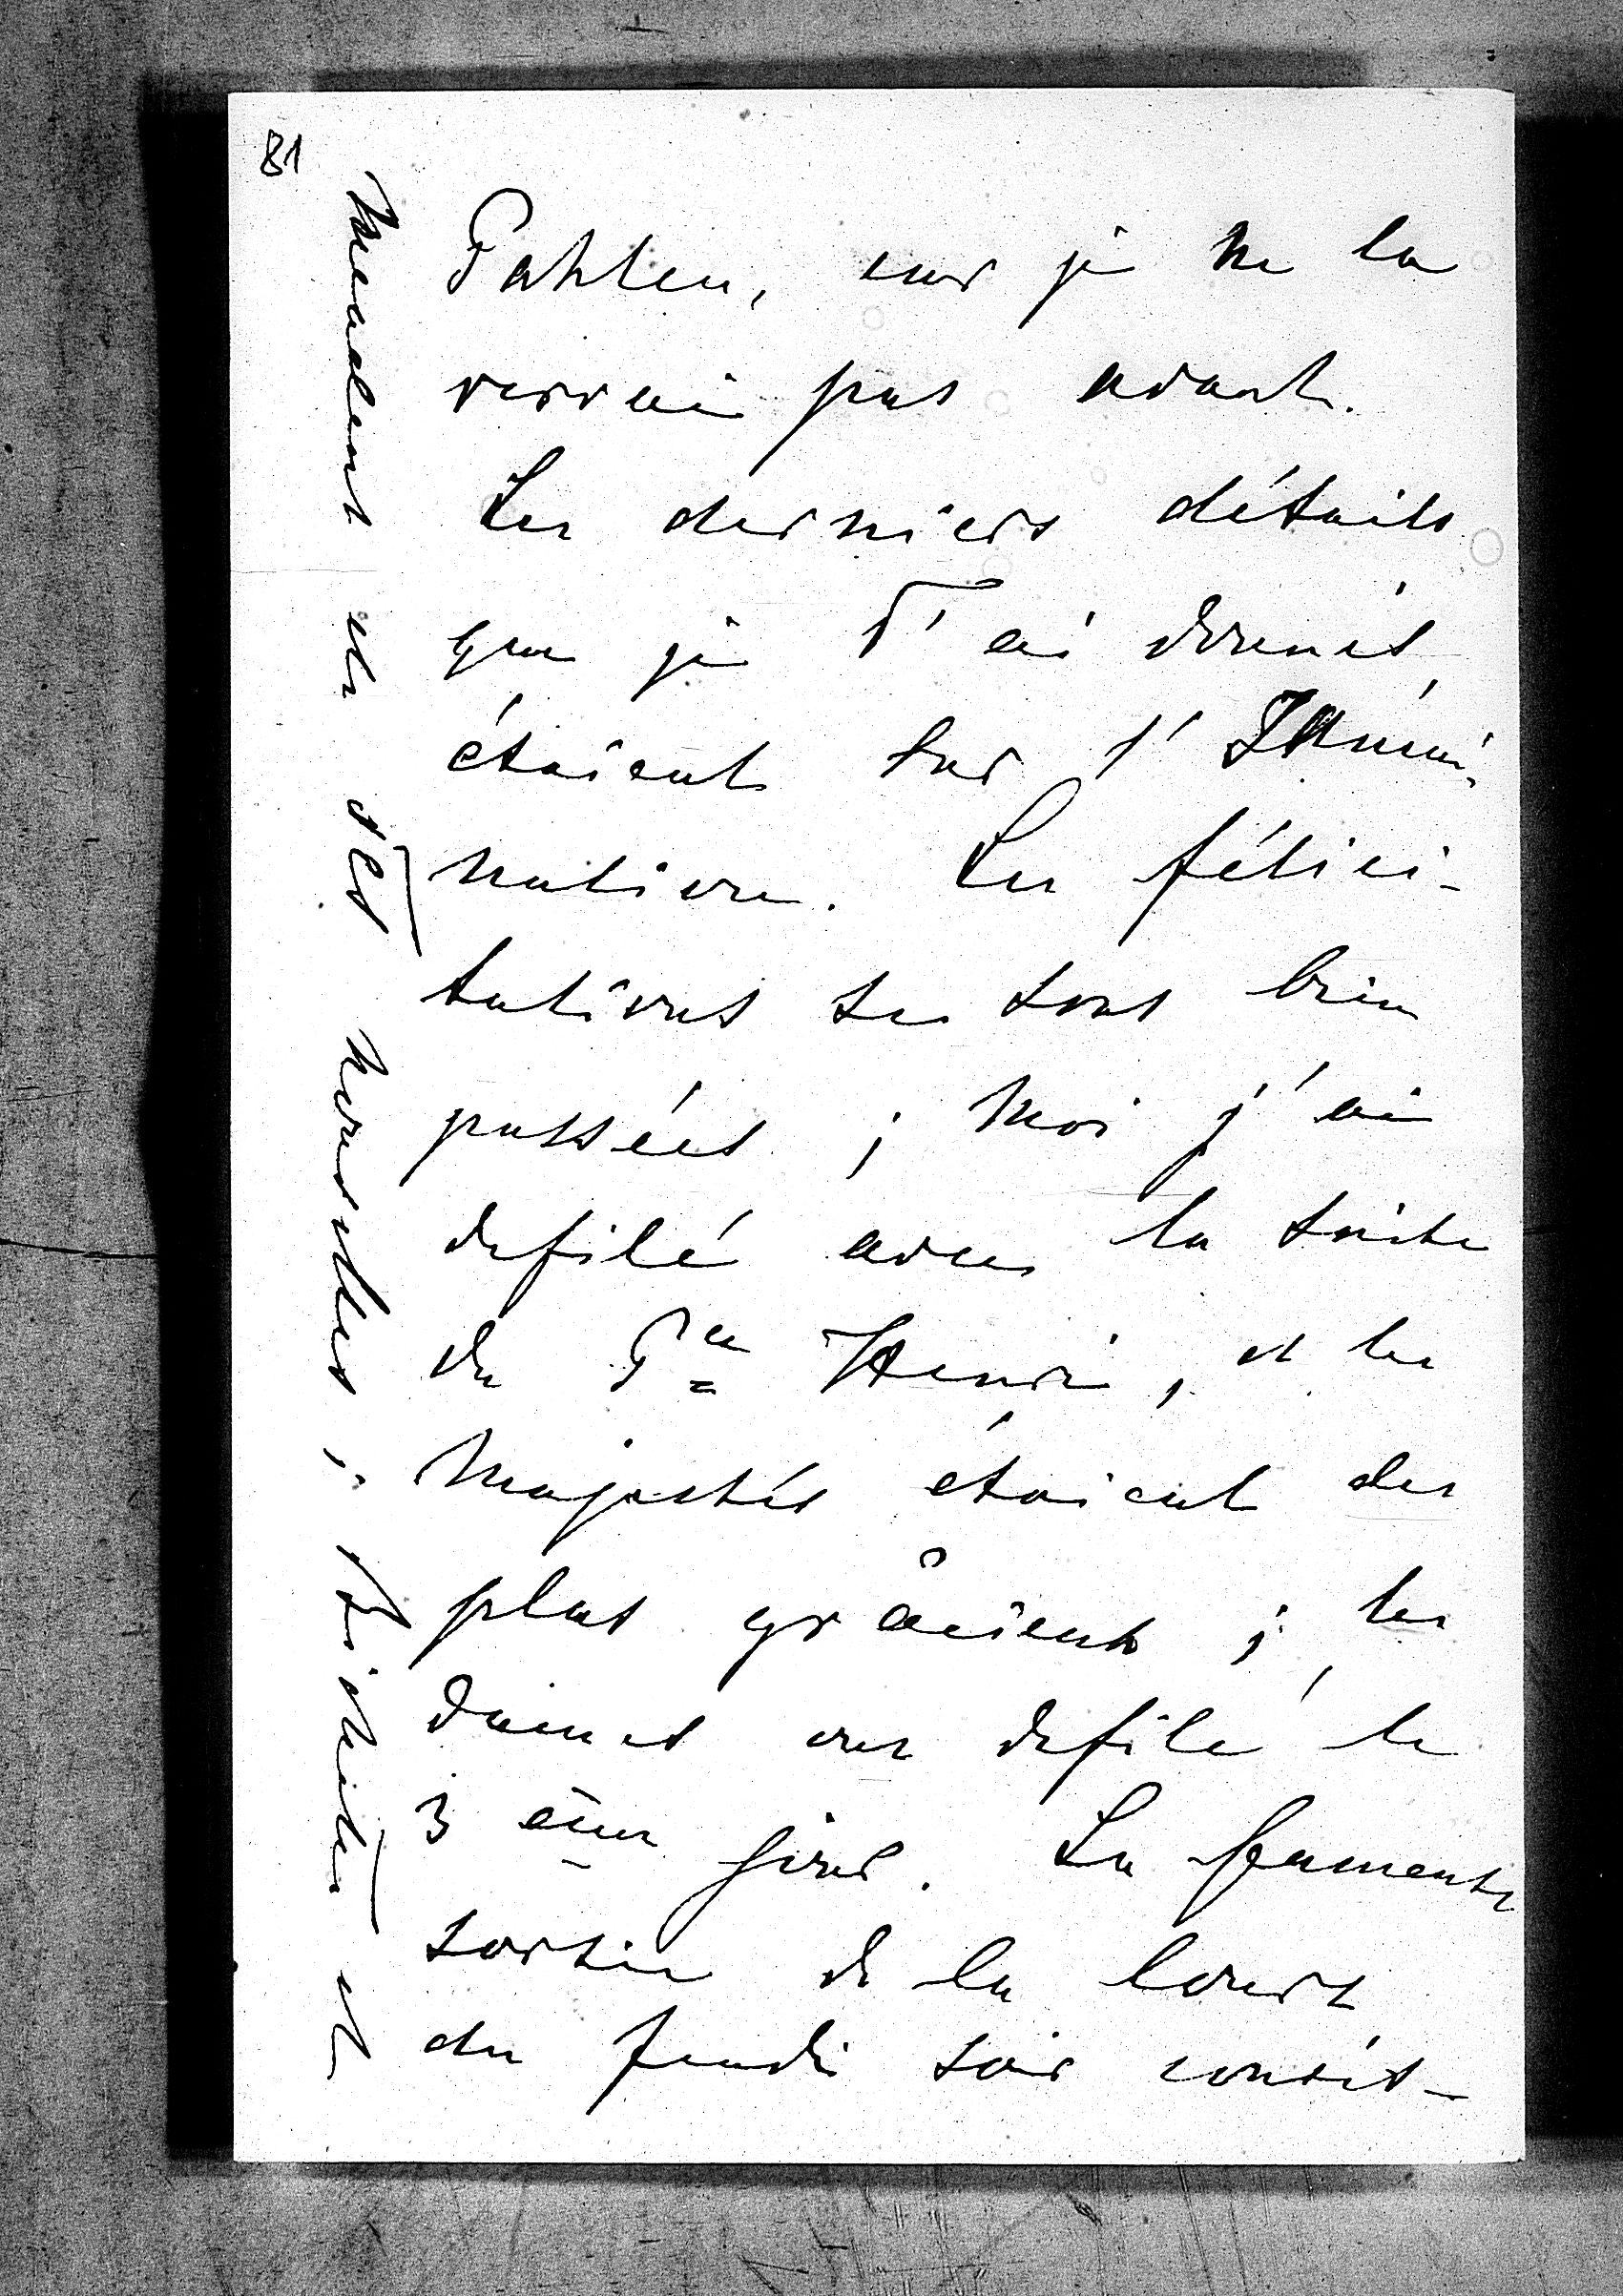 81
Pahlen, car je ne la
verrai pas avant.
Les derniers détails
que je T'ai donnés,
étaient sur l'Illumi-
nation. Les félici-
tations se sont bien
passées ; moi j'ai
defilé avec la suite
du Pce Henri, et les
Majestés étaient des
plus grâcieux ; les
dames ont defilé le
3 ème jour. La fameuse
sortie de la Cour
du jeudi soir consis-
de ses nouvelles ; et